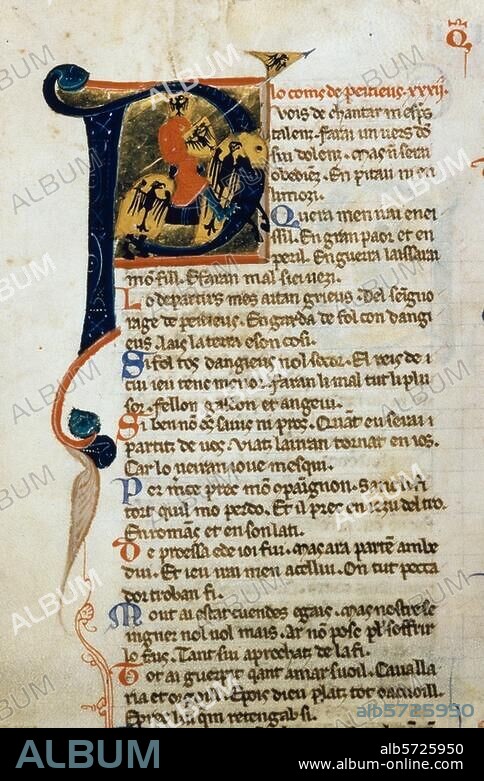 Q
lo coms de peitieus. xxxij.
P
vois de chantar mes ps
talenz. farai un uers dō
sui dolenz. Mas ñ serai
obedienz. En pitau ni en
limozi.
Quera men uai enei
sill. En gran paor et en
peril. En guerra laissarai
mō fill. E faran mal siei uezi.
Lo departirs mes aitan grieus. Del seigno
rage de peitieus. En garda de fol con dangi
eus. lais la terra e son cosi.
Si fol cos dangieus nol socor. El reis de
cui ieu tenc menor. Faran li mal tut li plu
sor. fellon gascon et angeui.
Si ben nō es sauis ni pros. Quāt eu serai
partitz de uos. Viatz lauran tornat en ios.
Car lo ueiran ioue mesqui.
Per merce prec mō cōpaignon. Sanc li fi
tort quil mo perdo. Et il prec en iezu del tro.
En romans et en son lati.
De proessa e de ioi fui. Mas ara partē ambe
dui. Et ieu uai men a cellui. On tut pecca
dor troban fi.
Mout ai estat cuendes e gais. Mas nostre se
ingner nol uol mais. Ar nō posc plus soffrir
lo fais. Tant sui aprochatz de la fi.
Tot ai guerpit qant amar suoil. Caualla
ria et orgoill. E pois dieu platz tot o acuoill.
E prec li qim retenga ab si.
ALBUM
alb5725950
alb5725950
ALBUM
album-online.com